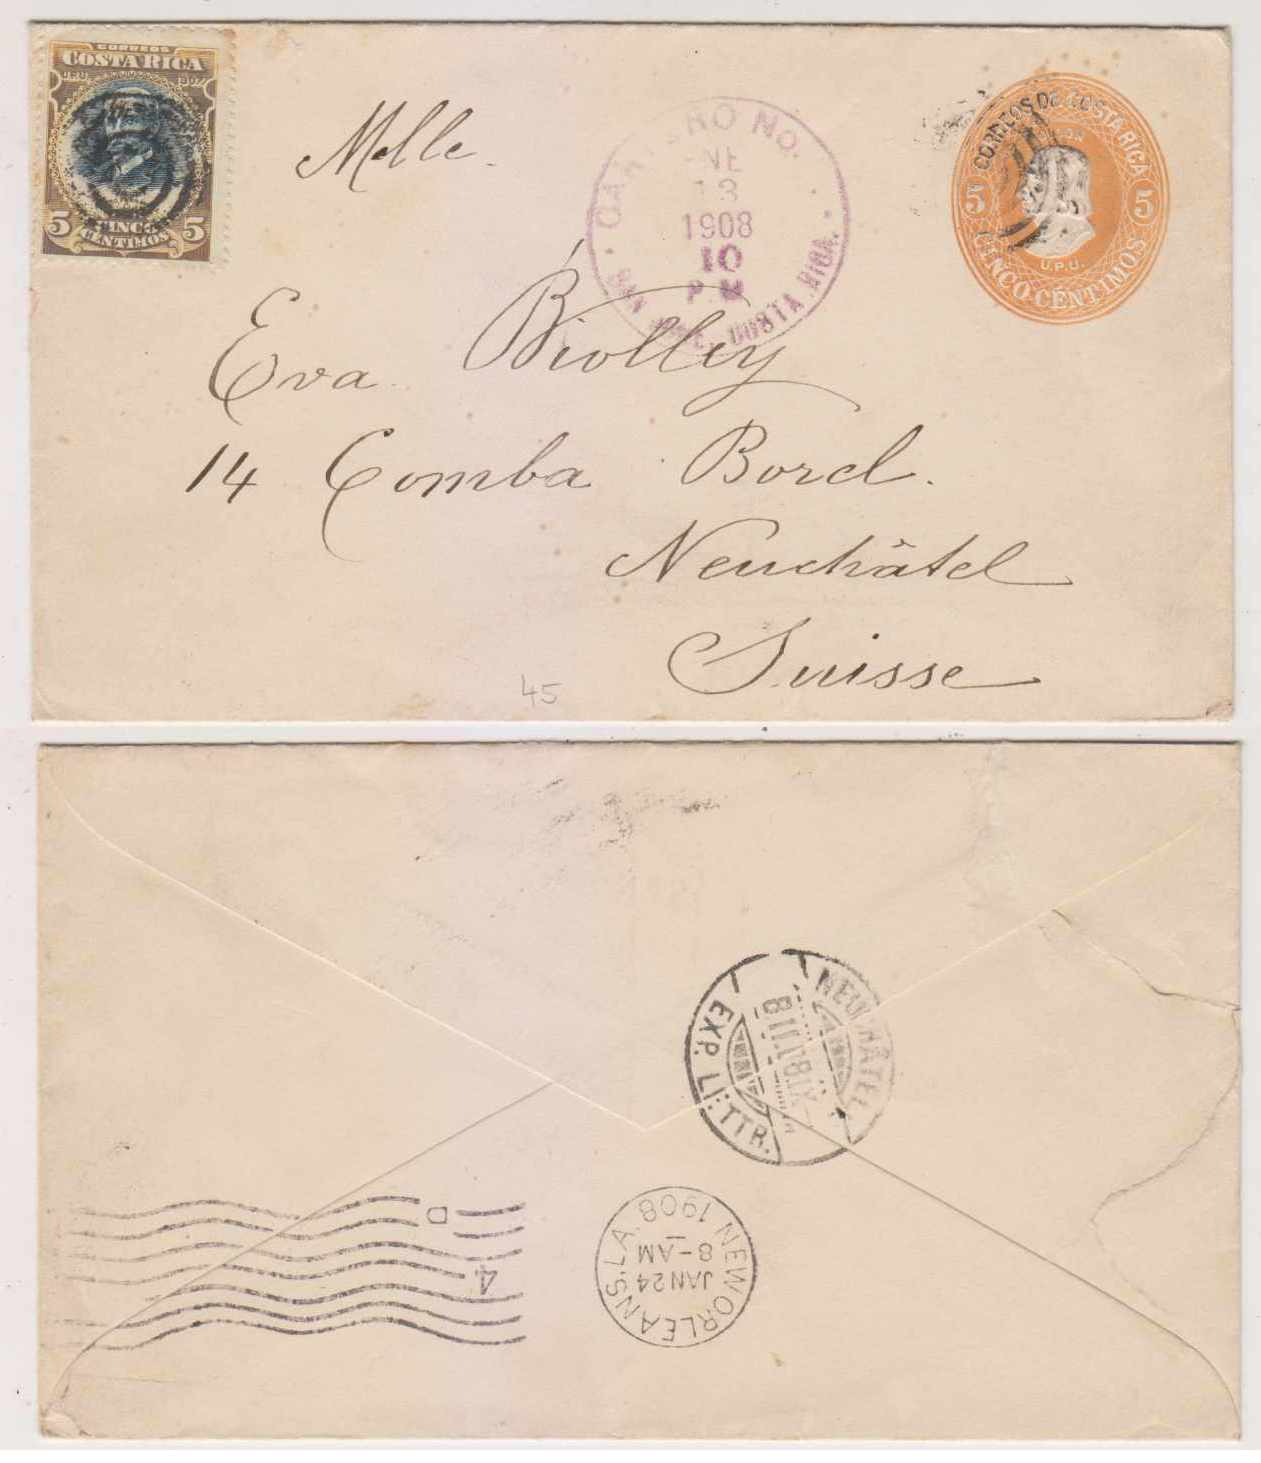 CORREOS
COSTA RICA
U.P.U. 1907
5 CINCO 5
CENTIMOS
Melle.
NO.
ENE
13
1908
10
P.M
SAN JOSE, COSTA RICA.
CORREOS DE COSTA RICA
5 5
U.P.U.
CINCO CENTIMOS
Eva Biolley
14 Comba Borel.
Neuchâtel
Suisse
45
NEUCHÂTEL
8 II.08.IX
EXP. LETTR.
NEW ORLEANS, LA.
JAN 24
8-AM
1908
D
4